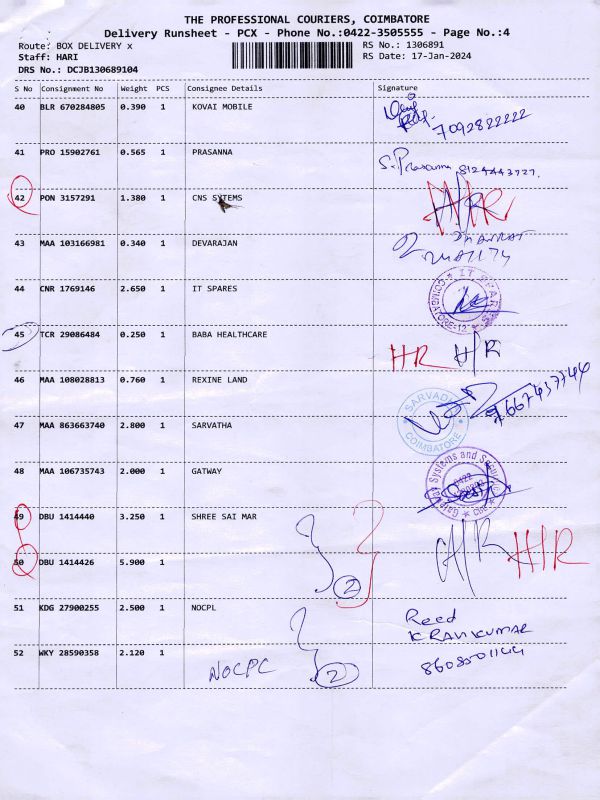 THE PROFESSIONAL COURIERS, COIMBATORE
Delivery Runsheet - PCX - Phone No.:0422-3505555 - Page No.:4
Route: BOX DELIVERY x
RS No.: 1306891
Staff: HARI
RS Date: 17-Jan-2024
DRS No.: DCJB130689104
S No Consignment No Weight PCS Consignee Details Signature
40 BLR 670284805 0.390 1 KOVAI MOBILE
7092822222
41 PRO 15902761 0.565 1 PRASANNA
S. Prasanna 8124443727.
42 PON 3157291 1.380 1 CNS SYTEMS
H/R
43 MAA 103166981 0.340 1 DEVARAJAN
44 CNR 1769146 2.650 1 IT SPARES
IT SPARES COIMBATORE-12
45 TCR 29086484 0.250 1 BABA HEALTHCARE
HR H/R
46 MAA 108028813 0.760 1 REXINE LAND
7667437744
47 MAA 863663740 2.800 1 SARVATHA
COIMBATORE
48 MAA 106735743 2.000 1 GATWAY
Systems and
49 DBU 1414440 3.250 1 SHREE SAI MAR
50 DBU 1414426 5.900 1
2
H/R H/R
51 KDG 27900255 2.500 1 NOCPL
Reed
K RAVIKUMAR
52 WKY 28590358 2.120 1
NOCPC
2